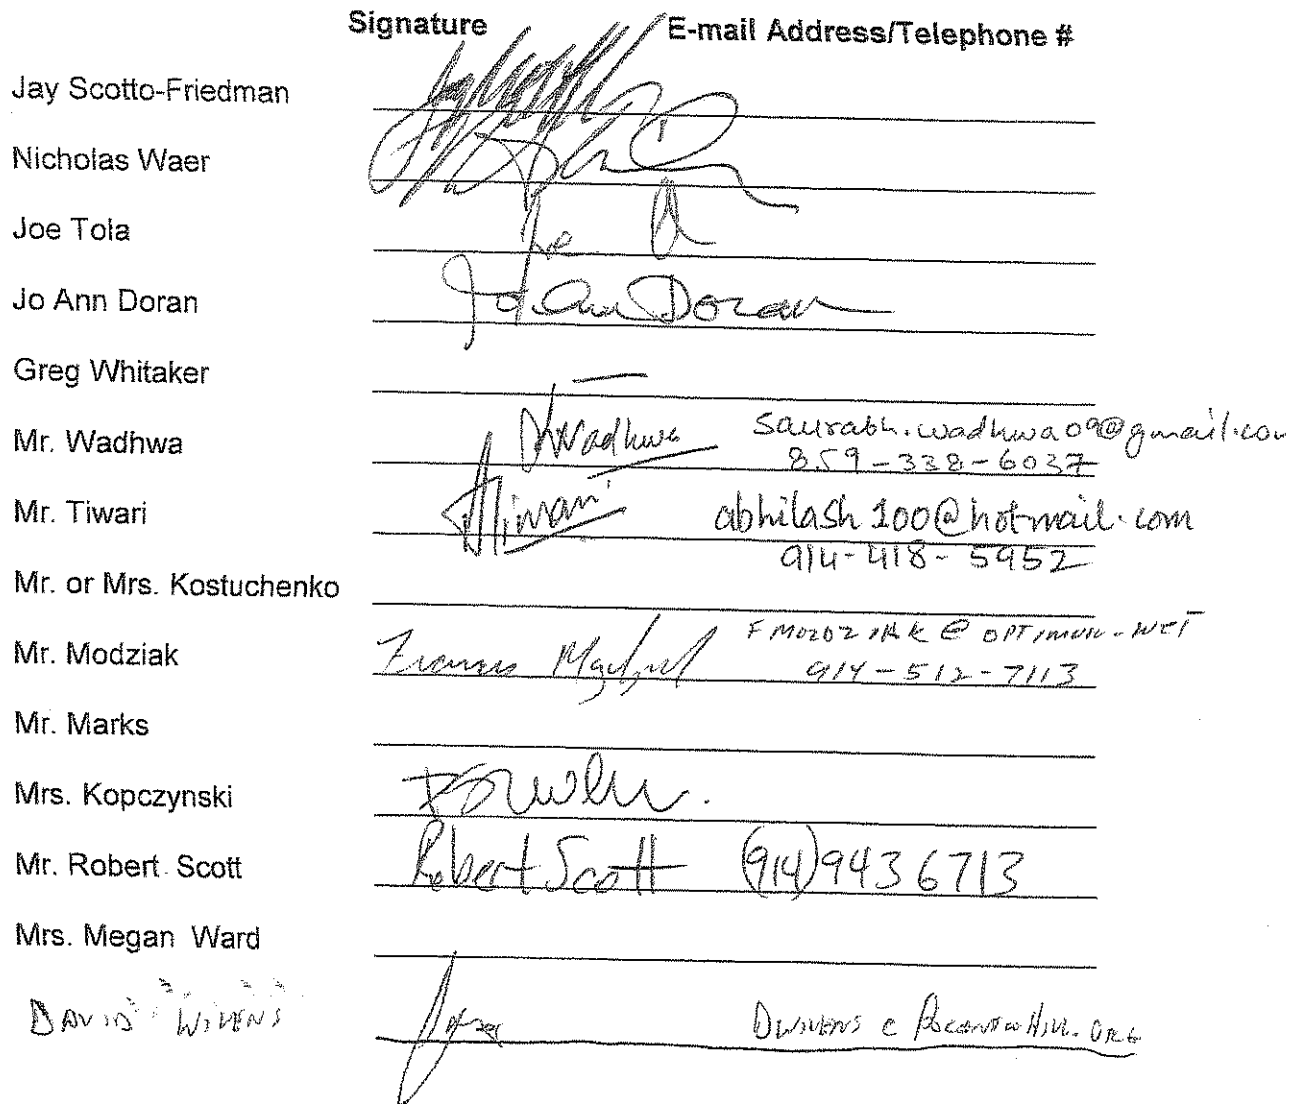 Signature E-mail Address/Telephone #
Jay Scotto-Friedman
Nicholas Waer
Joe Tola
Jo Ann Doran Jo Ann Doran
Greg Whitaker —
Mr. Wadhwa Wadhwa saurabh.wadhwa09@gmail.com
859-338-6037
Mr. Tiwari Tiwari abhilash100@hotmail.com
914-418-5952
Mr. or Mrs. Kostuchenko
Mr. Modziak Francis FMOZDZIAK@OPTIMUM.NET
914-512-7113
Mr. Marks
Mrs. Kopczynski
Mr. Robert Scott Robert Scott (914)9436713
Mrs. Megan Ward
DAVID WIVENS